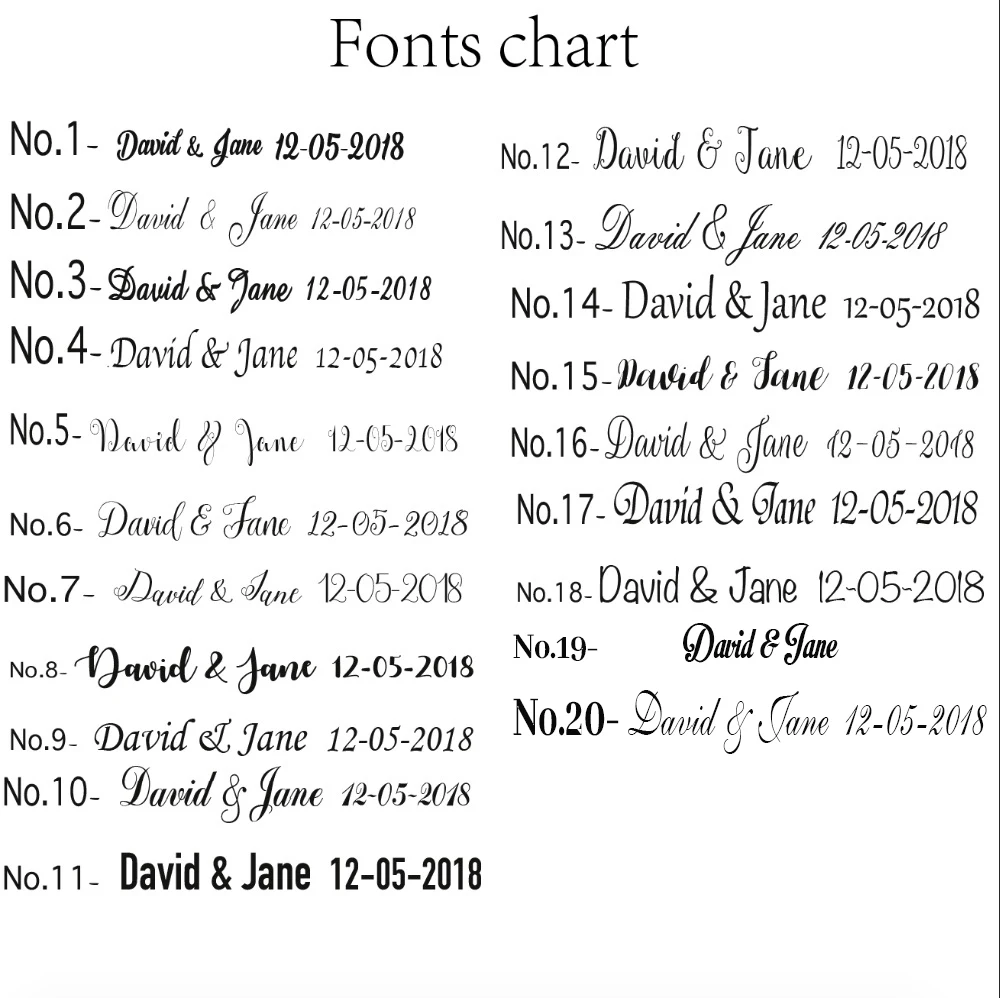 Fonts chart
No.1- David & Jane 12-05-2018
No.2- David & Jane 12-05-2018
No.3- David & Jane 12-05-2018
No.4- David & Jane 12-05-2018
No.5- David & Jane 12-05-2018
No.6- David & Jane 12-05-2018
No.7- David & Jane 12-05-2018
No.8- David & Jane 12-05-2018
No.9- David & Jane 12-05-2018
No.10- David & Jane 12-05-2018
No.11- David & Jane 12-05-2018
No.12- David & Jane 12-05-2018
No.13- David & Jane 12-05-2018
No.14- David & Jane 12-05-2018
No.15- David & Jane 12-05-2018
No.16- David & Jane 12-05-2018
No.17- David & Jane 12-05-2018
No.18- David & Jane 12-05-2018
No.19- David & Jane
No.20- David & Jane 12-05-2018